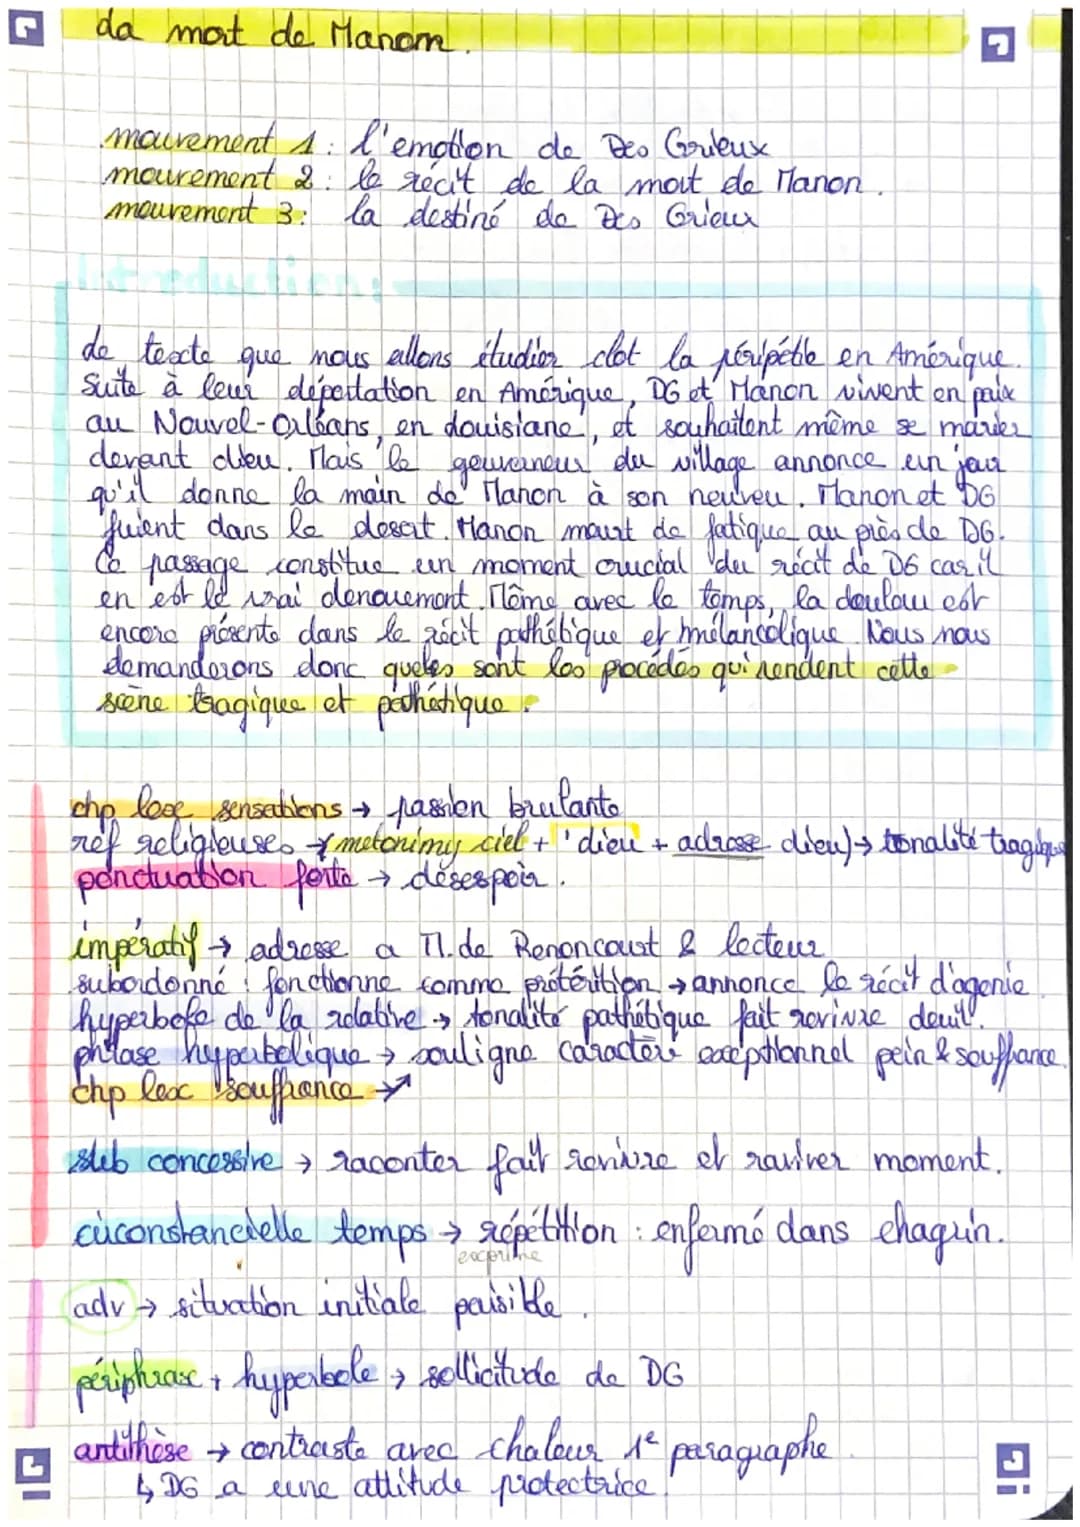 La mort de Manon.
mouvement 1 : l'emotion de Des Grieux
mouvement 2 : le récit de la mort de Manon.
mouvement 3 : la destiné de Des Grieux
Introduction :
Le texte que nous allons étudier clot la péripétie en Amérique.
Suite à leur déportation en Amérique, DG et Manon vivent en paix
au Nouvel-Orléans, en Louisiane, et souhaitent même se marier
devant dieu. Mais le gouverneur du village annonce un jour
qu'il donne la main de Manon à son neuveu. Manon et DG
fuient dans le desert. Manon meurt de fatigue au près de DG.
Ce passage constitue un moment crucial du récit de DG car il
en est le vrai denouement. Même avec le temps, la douleur est
encore présente dans le récit pathétique et mélancolique. Nous nous
demanderons donc queles sont les procédés qui rendent cette
scène tragique et pathétique.
chp lexc sensations → passion brulante
réf religieuses → (metonimy ciel + 'dieu + adresse dieu) → tonalité tragique
ponctuation forte → désespoir.
impératif → adresse a M. de Renoncourt & lecteur
subordonné : fonctionne comme prétérition → annonce le récit d'agonie.
hyperbole de la relative → tonalité pathétique fait revivre deuil.
phrase hyperbolique → souligne caractère exceptionnel pein & souffrance.
chp lexc souffrance →
sub concessive → raconter fait revivre et raviver moment.
circonstancielle temps → répétition : enfermé dans chagrin.
exprime
adv → situation initiale paisible.
périphrase + hyperbole → sollicitude de DG
antithèse → contraste avec chaleur 1e paragraphe.
↳ DG a une attitude protectrice.